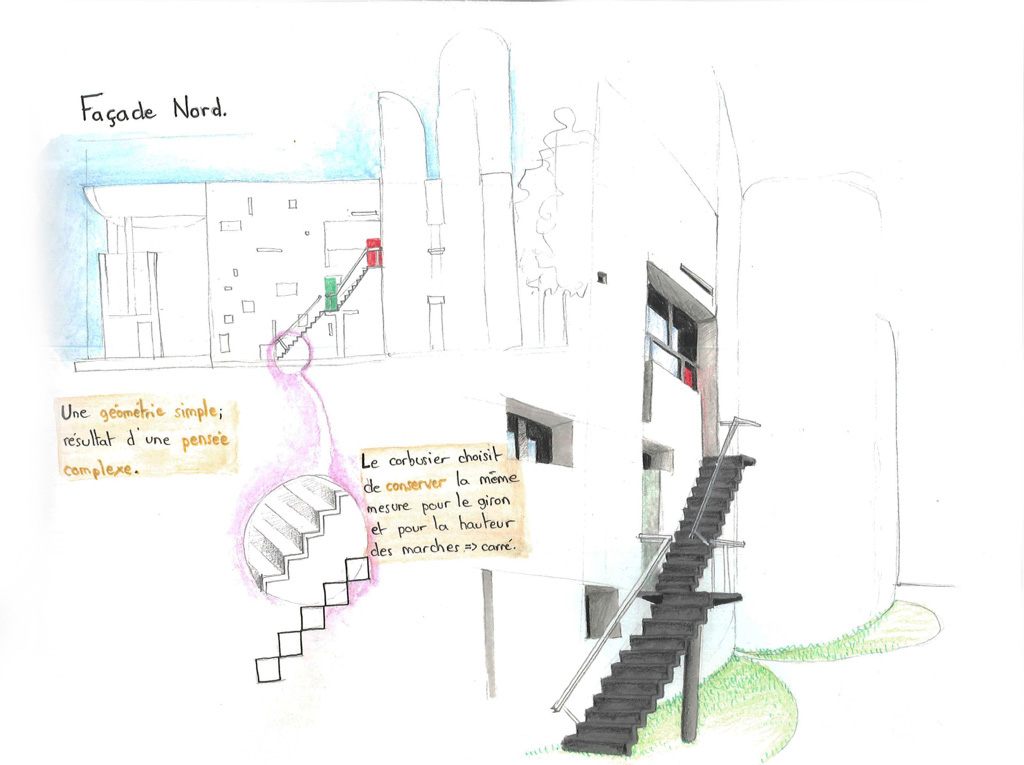 Façade Nord.
Une géométrie simple;
résultat d'une pensée
complexe.
Le corbusier choisit
de conserver la même
mesure pour le giron
et pour la hauteur
des marches => carré.